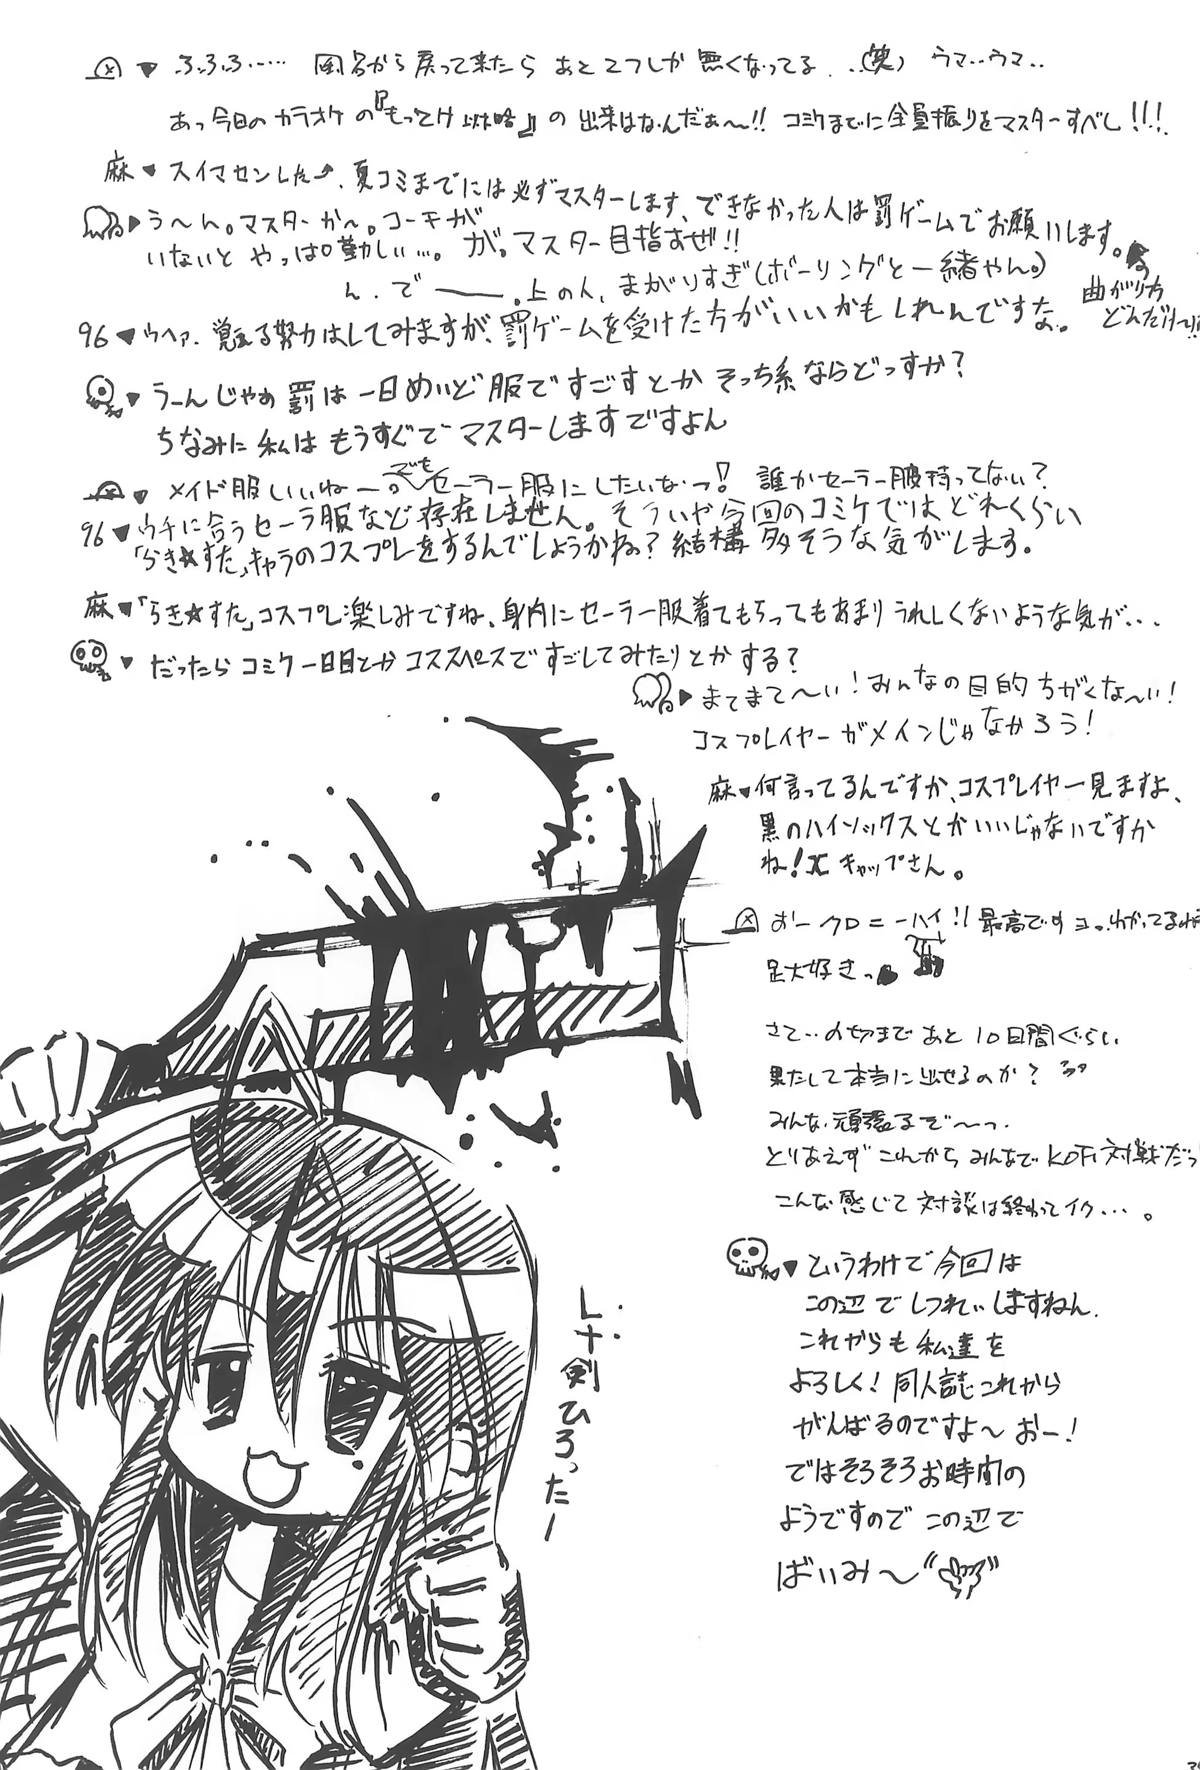 ふふふ…… 風呂から戻って来たら あと2つしか無くなってる…(笑) ウマ…ウマ…
あっ今日のカラオケの『もってけ 以下略』の出来はなんだぁ〜!! コミケまでに全員振りをマスターすべし!!!
麻♥スイマセンした 夏コミまでには必ずマスターします、できなかった人は罰ゲームでお願いします。
う〜ん。マスターか〜。コーチが
いないと やっぱ難しい…。が。マスター目指すぜ!!
ん、で ――。上の人、まがりすぎ(ボーリングと一緒やん。)
曲がり方
どんだけ
96♥ウヘァ、覚える努力はしてみますが、罰ゲームを受けた方がいいかもしれんですなぁ。
うーんじゃぁ 罰は一日めいど服ですごすとか そっち系ならどっすか?
ちなみに私はもうすぐでマスターしますですよん
メイド服いいねー。でもセーラー服にしたいなっ! 誰かセーラー服持ってない?
96♥ウチに合うセーラ服など存在しません。そういや今回のコミケではどれくらい
「らき☆すた」キャラのコスプレをするんでしょうかね?結構多そうな気がします。
麻♥「らき☆すた」コスプレ楽しみですね、身内にセーラー服着てもらってもあまりうれしくないような気が…
だったらコミケ一日目とかコススペースですごしてみたりとかする?
まてまて〜い!みんなの目的ちがくな〜い!
コスプレイヤーがメインじゃなかろう!
麻♥何言ってるんですか、コスプレイヤー見ますよ、
黒のハイソックスとかいいじゃないですか
ね!Xキャップさん。
おークロニーハイ!! 最高ですヨ。わかってるね
足大好きっ
さて…〆切まであと10日間ぐらい
果たして本当に出せるのか?
みんな頑張るぞ〜っ
とりあえずこれからみんなでKOF対戦だっ
こんな感じで対談は終わってイク…。
というわけで今回は
この辺でしつれいしますねん。
これからも私達を
よろしく!同人誌これから
がんばるのですよ〜おー!
ではそろそろお時間の
ようですのでこの辺で
ばいみ〜
レナ剣ひろったー